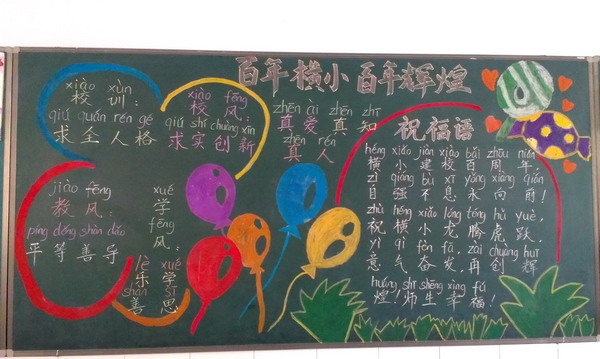 百年横小百年辉煌
xiào xùn
校训:
qiú quán rén gé
求全人格
xiào fēng
校风:
qiú shí chuàng xīn
求实创新
zhēn ài zhēn zhī
真爱真知
zhēn rén
真人
jiào fēng
教风:
píng děng shàn dǎo
平等善导
xué
学
fēng
风:
lè xué
乐学
shàn
善思
祝福语
héng xiǎo jiàn xiào bǎi zhōu nián
横小建校百周年,
zì qiáng bù xī yǒng xiàng qián
自强不息永向前!
zhù héng xiǎo lóng téng hǔ yuè.
祝横小龙腾虎跃.
yì qì fèn fā, zài chuàng huī
意气奋发,再创辉
huáng shī shēng xìng fú
煌!师生幸福!